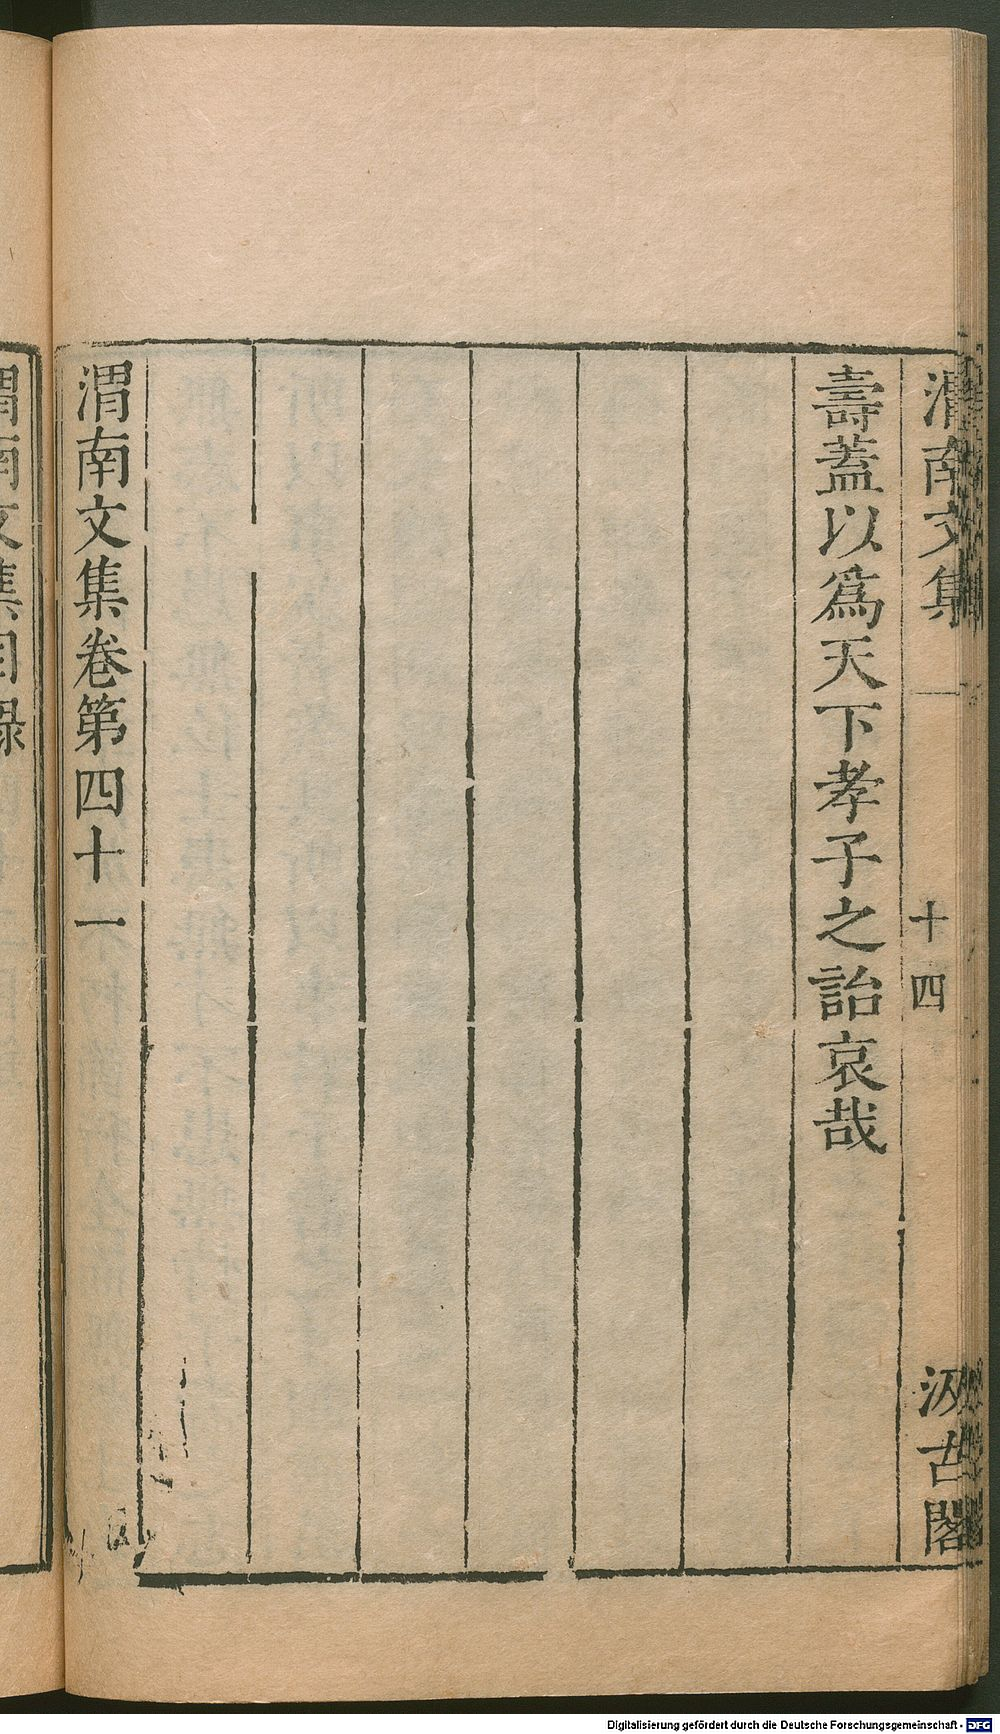 渭南文集
十四
汲古閣
壽蓋以爲天下孝子之詒哀哉
渭南文集卷第四十一
渭南文集目錄
Digitalisierung gefördert durch die Deutsche Forschungsgemeinschaft - DFG